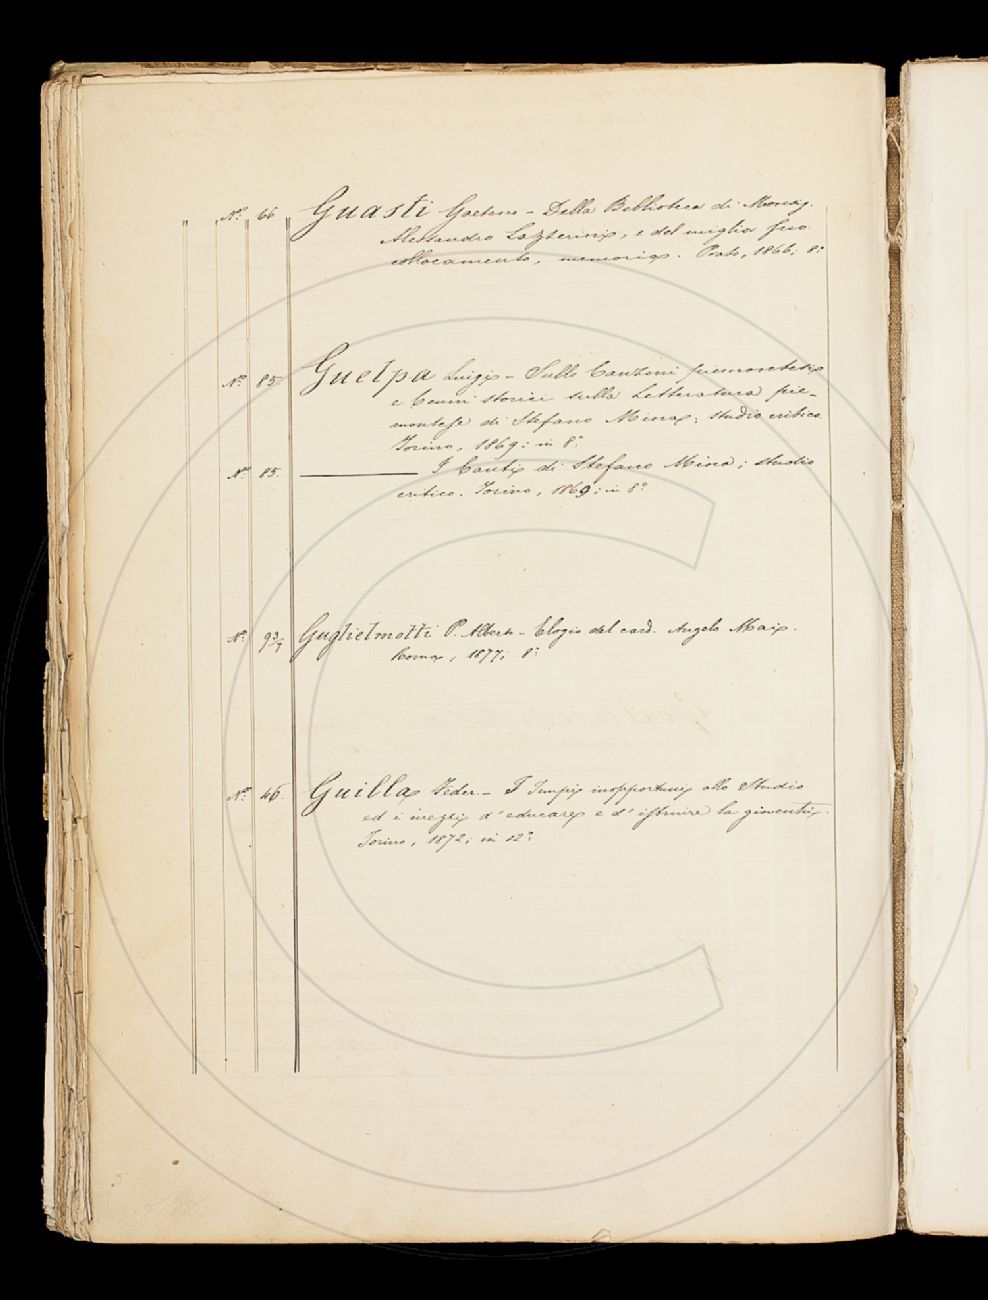 N.° 66 Guasti Gaetano - Della Biblioteca di Monsig.
Alessandro Lazzerini, e del miglior suo
collocamento, memoria. Prato, 1866; 8.°
N.° 85. Guelpa Luigi - Sulle Canzoni piemontesi
e Cenni storici sulla Letteratura pie-
montese di Stefano Mina; studio critico.
Torino, 1869; in 8.°
N.° 85. I Canti di Stefano Mina; studio
critico. Torino, 1869; in 8.°
N.° 93/7 Guglielmotti P. Alberto - Elogio del card. Angelo Mai.
Roma, 1877; 8.°
N.° 46. Guilla Feder. - I Tempi inopportuni allo Studio
ed i mezzi d'educare e d'istruire la gioventù.
Torino, 1872; in 12.°